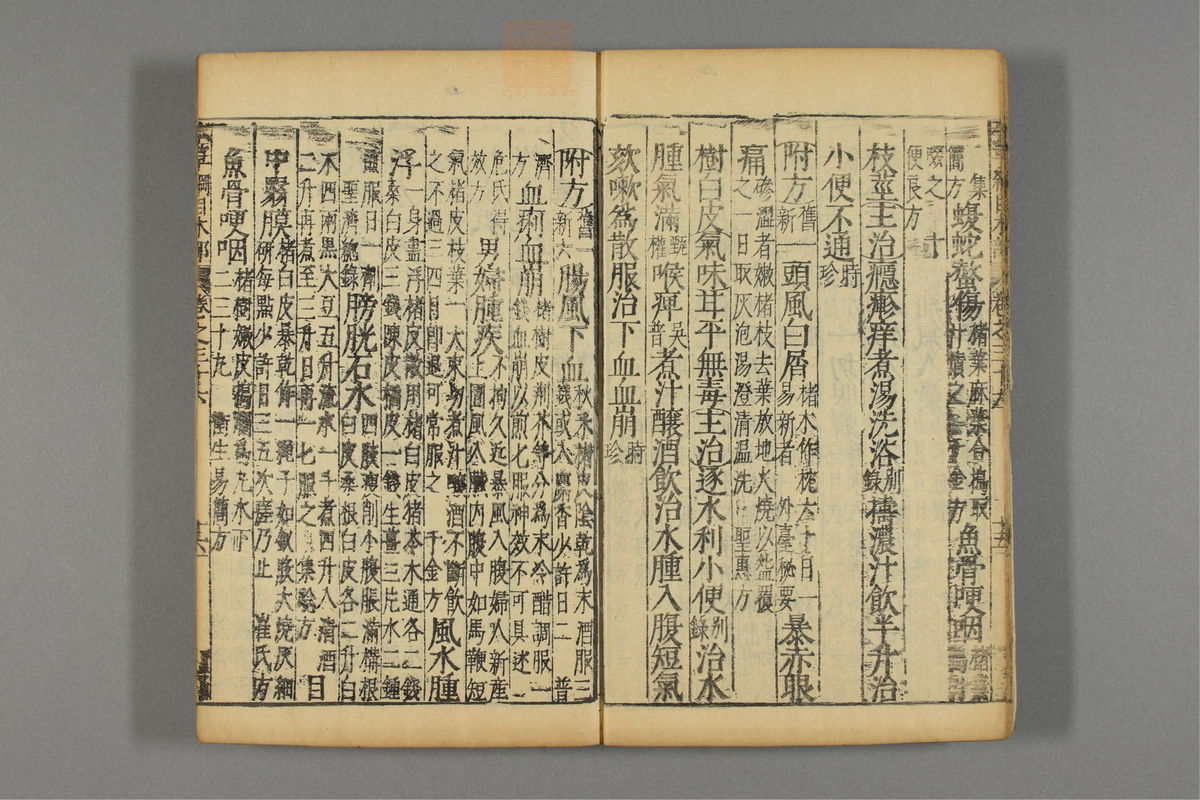 集 蝮蛇螫傷 楮葉麻葉合搗取
簡方 汁漬之 千金方 魚骨哽咽 楮葉
啜之 十
便良方
枝莖主治癮𤺋痒煮湯洗浴別錄 擣濃汁飲半升治
小便不通時珍
附方舊一新一 頭風白屑 楮木作枕六十日一
易新者 外臺秘要 暴赤眼
痛 磣澀者嫩楮枝去葉放地火燒以盌覆
之一日取灰泡湯澄清温洗 聖惠方
樹白皮氣味甘平無毒主治逐水利小便別錄 治水
腫氣滿甄權 喉痹吳普 煮汁釀酒飲治水腫入腹短氣
欬嗽為散服治下血血崩時珍
附方舊一新六 腸風下血 秋采楮皮陰乾為末酒服三
錢或入麝香少許日二 普
濟方 血痢血崩 楮樹皮荊芥等分為末冷醋調服一
錢血崩以煎匕服神效不可具述
危氏得效方 男婦腫疾 不拘久近暴風入腹婦人新產
上圊風入臟內腹中如馬鞭短
氣楮皮枝葉一大束切煮汁釀酒不斷飲
之不過三四日即退可常服之 千金方 風水腫
浮 一身盡浮楮皮散用楮白皮猪苓木通各二錢
桑白皮三錢陳皮橘皮一錢生薑三片水二鍾
煎服日一劑
聖濟總錄 膀胱石水 四肢瘦削小腹脹滿構根
白皮桑根白皮各二升白
朮四兩黑大豆五升流水一斗煮四升入清酒
二升再煮至三升日再一匕服之 集驗方 目
中翳膜 楮白皮暴乾作一繩子如釵股大燒灰細
研每點少許日三五次瘥乃止 崔氏方
魚骨哽咽 楮樹嫩皮搗爛為丸水下
二三十丸 衛生易簡方